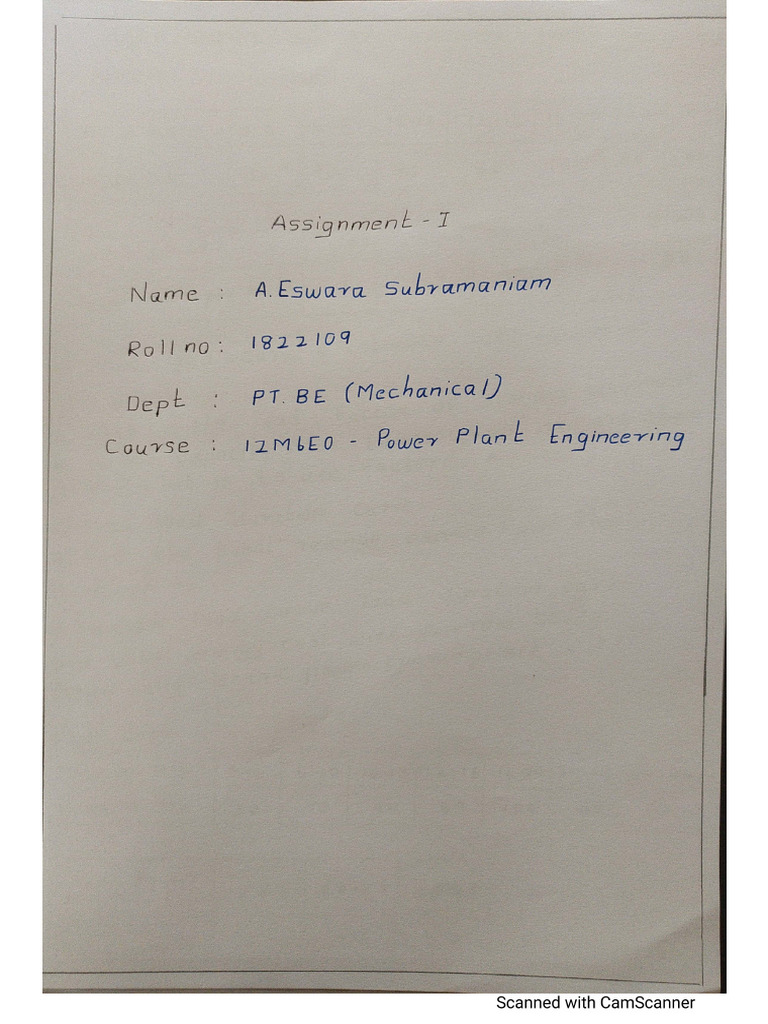 Assignment - I
Name : A. Eswara Subramaniam
Roll no : 1822109
Dept : PT. BE (Mechanical)
Course : 12M6E0 - Power Plant Engineering
Scanned with CamScanner